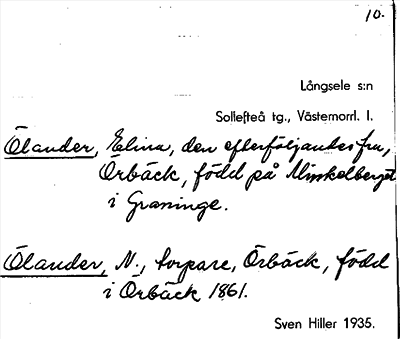 10.
Långsele s:n
Sollefteå tg., Västernorrl. l.
Ölander, Elina, den efterföljandes fru,
Örbäck, född på Minkelberget
i Graninge.
Ölander, N., torpare, Örbäck, född
i Örbäck 1861.
Sven Hiller 1935.